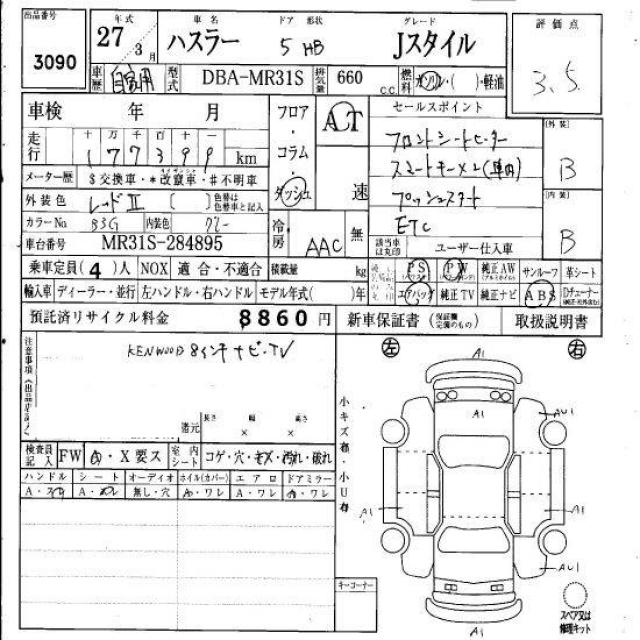 出品番号 年式 車名 ドア 形状 グレード 評価点
3090 27 3月 ハスラー 5 HB Jスタイル 3.5
車歴 自家用 型式 DBA-MR31S 排気量 660 c.c. 燃料 ガソリン・( )・軽油
車検 年 月 フロア・コラム・ダッシュ AT 速 セールスポイント
走行 十 万 千 百 十 一
177399 km
フロントシートヒーター
スマートキーX2(車内)
プッシュスタート
ETC
外装 B
内装 B
メーター歴 $ 交換車・*改竄車・#不明車
外装色 レッドII ( ) 色替は色替車と記入
カラーNo. B3G 内装色 グレー 冷房 AAC 無
車台番号 MR31S-284895 該当車は丸印 ユーザー仕入車
乗車定員(4)人 NOX 適合・不適合 積載量 kg PS PW 純正AW サンルーフ 革シート
輸入車 ディーラー・並行 左ハンドル・右ハンドル モデル年式( )年 エアバッグ 純正TV 純正ナビ ABS
預託済リサイクル料金 8860円 新車保証書 (保証機完備のもの) 取扱説明書
注意事項(出品店記入)
KENWOOD 8インチナビ・TV
還元 長さ 幅 高さ
× ×
検査員記入 FW A・X要ス 室内シート コゲ・穴・キズ・汚れ・破れ
ハンドル シート オーディオ ホイル(カバー) エアロ ドアミラー
A・スレ A・ヨレ 無し・穴 A・ワレ A・ワレ A・ワレ
キーコーナー
小キズ有・小U有
左 右
A1
A1
AU1
A1
A1
AU1
A1
スペア又は修理キット